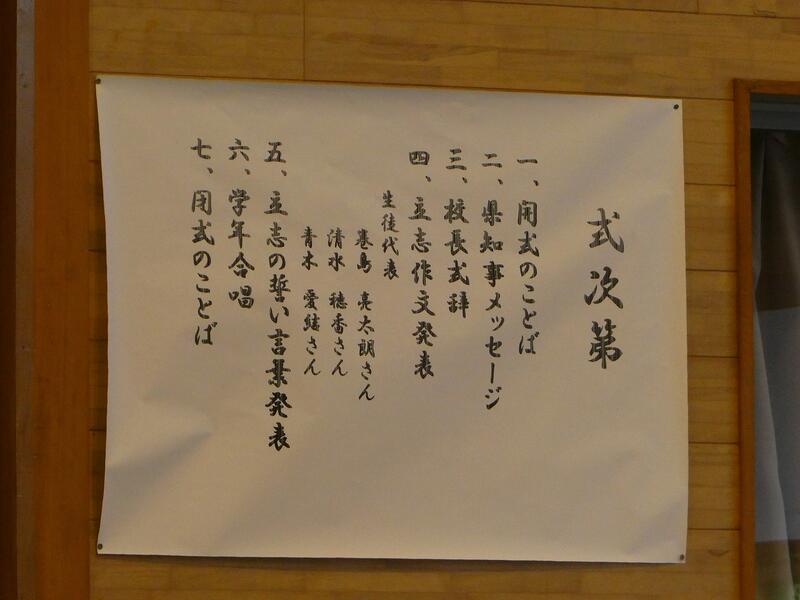 式次第
一、開式のことば
二、県知事メッセージ
三、校長式辞
四、立志作文発表
生徒代表
巻島 亮太朗さん
清水 穂香さん
青木 愛結さん
五、立志の誓い言葉発表
六、学年合唱
七、閉式のことば